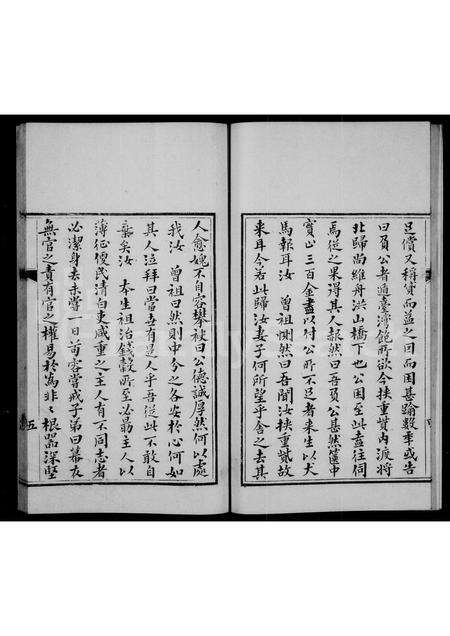 足償又稱貸而益之因而困甚踰數季或告
曰負公者適臺灣飽所欲今挾重貲內渡將
北歸尚維舟洪山橋下也公困至此盍往伺
焉從之果得其人赧然曰吾負公甚然篋中
實止三百金盡以付公所不足者來生以犬
馬報耳汝 曾祖惻然曰吾聞汝挾重貲故
來耳今若此歸汝妻子何所望乎舍之去其
人愈媿不自容攀裾曰公德誠厚然何以處
我汝 曾祖曰然則中分之各安於心何如
其人泣拜曰當世有是人乎吾從此不敢自
棄矣汝 本生祖治錢穀所至必勗主人以
薄征便民清白吏咸重之主人有不同志者
必潔身去未嘗一日苟容嘗戒子弟曰幕友
無官之責有官之權易於為非非根器深堅
五